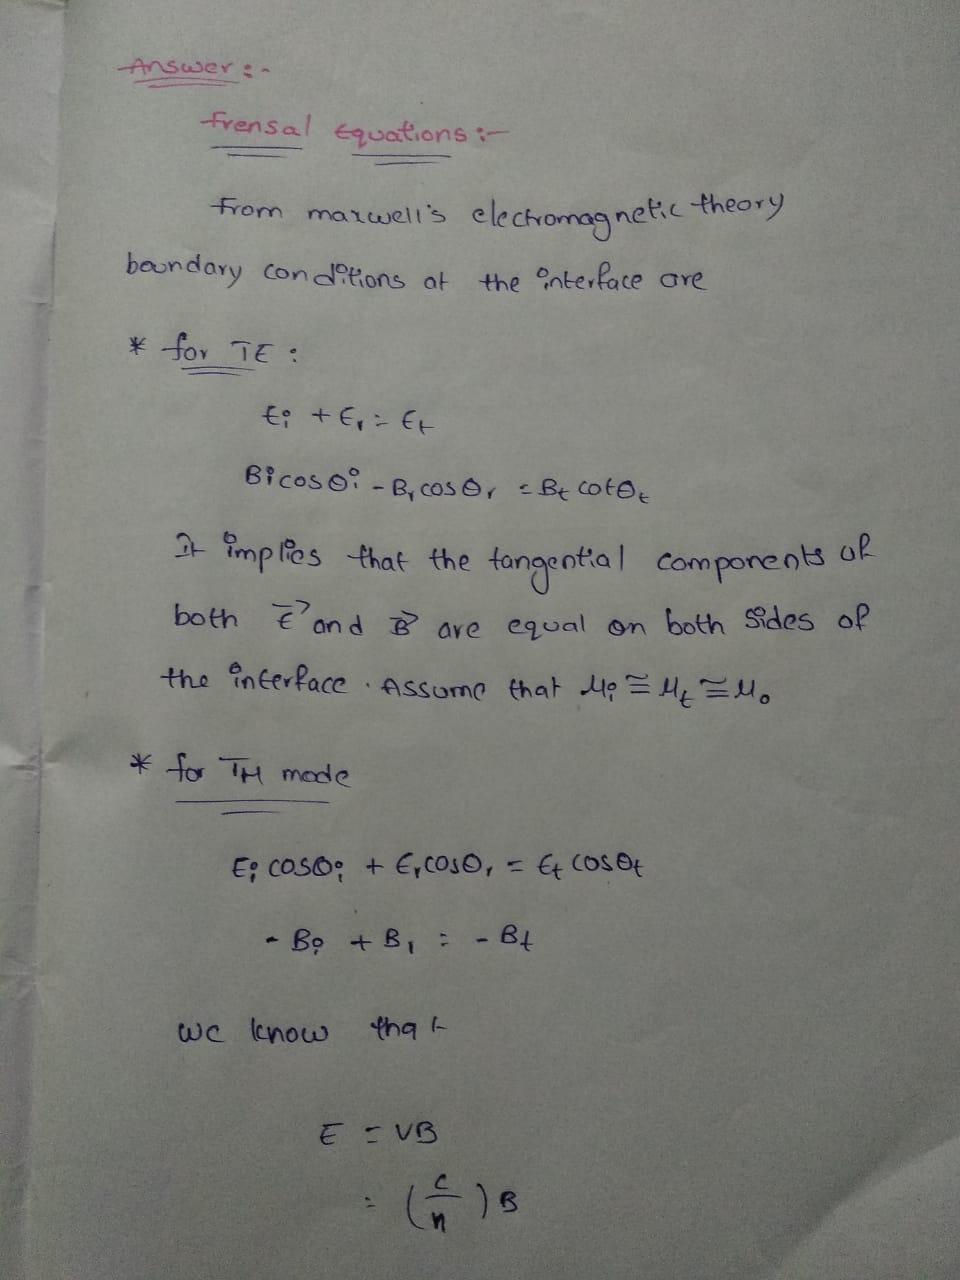 Answer :-
Frensal Equations :-
From maxwell's electromagnetic theory
boundary conditions at the interface are
* for TE :
Ei + Er = Et
Bi cosθi - Br cosθr = Bt cotθt
It implies that the tangential components of
both E⃗ and B⃗ are equal on both sides of
the interface. Assume that μi ≅ μt ≅ μo
* for TM mode
Ei cosθi + Er cosθr = Et cosθt
- Bi + Br = - Bt
we know that
E = VB
= (c/n) B